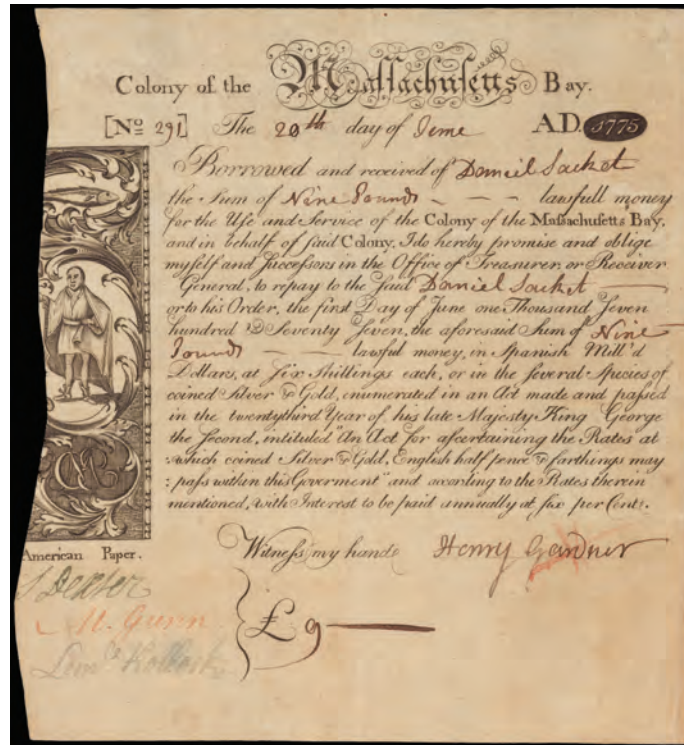 Colony of the Massachusetts Bay.
[No 291] The 20th day of June A.D. 1775
Borrowed and received of Daniel Sacket
the Sum of Nine Pounds - - - lawfull money
for the Use and Service of the Colony of the Massachusetts Bay,
and in behalf of said Colony, I do hereby promise and oblige
myself and Successors in the Office of Treasurer, or Receiver
General, to repay to the said Daniel Sacket
or to his Order, the first Day of June one Thousand Seven
hundred & Seventy Seven, the aforesaid Sum of Nine
Pounds - - - lawful money, in Spanish Mill'd
Dollars, at Six Shillings each, or in the several Species of
coined Silver & Gold, enumerated in an Act made and passed
in the twentythird Year of his late Majesty King George
the Second, intituled "An Act for ascertaining the Rates at
:which coined Silver & Gold, English half pence & farthings may
:pass within this Goverment" and according to the Rates therein
mentioned, with Interest to be paid annually at six per Cent:.
American Paper.
Witness my hand Henry Gardner
S Dexter
M. Gunn
Lem. Kollock
£ 9